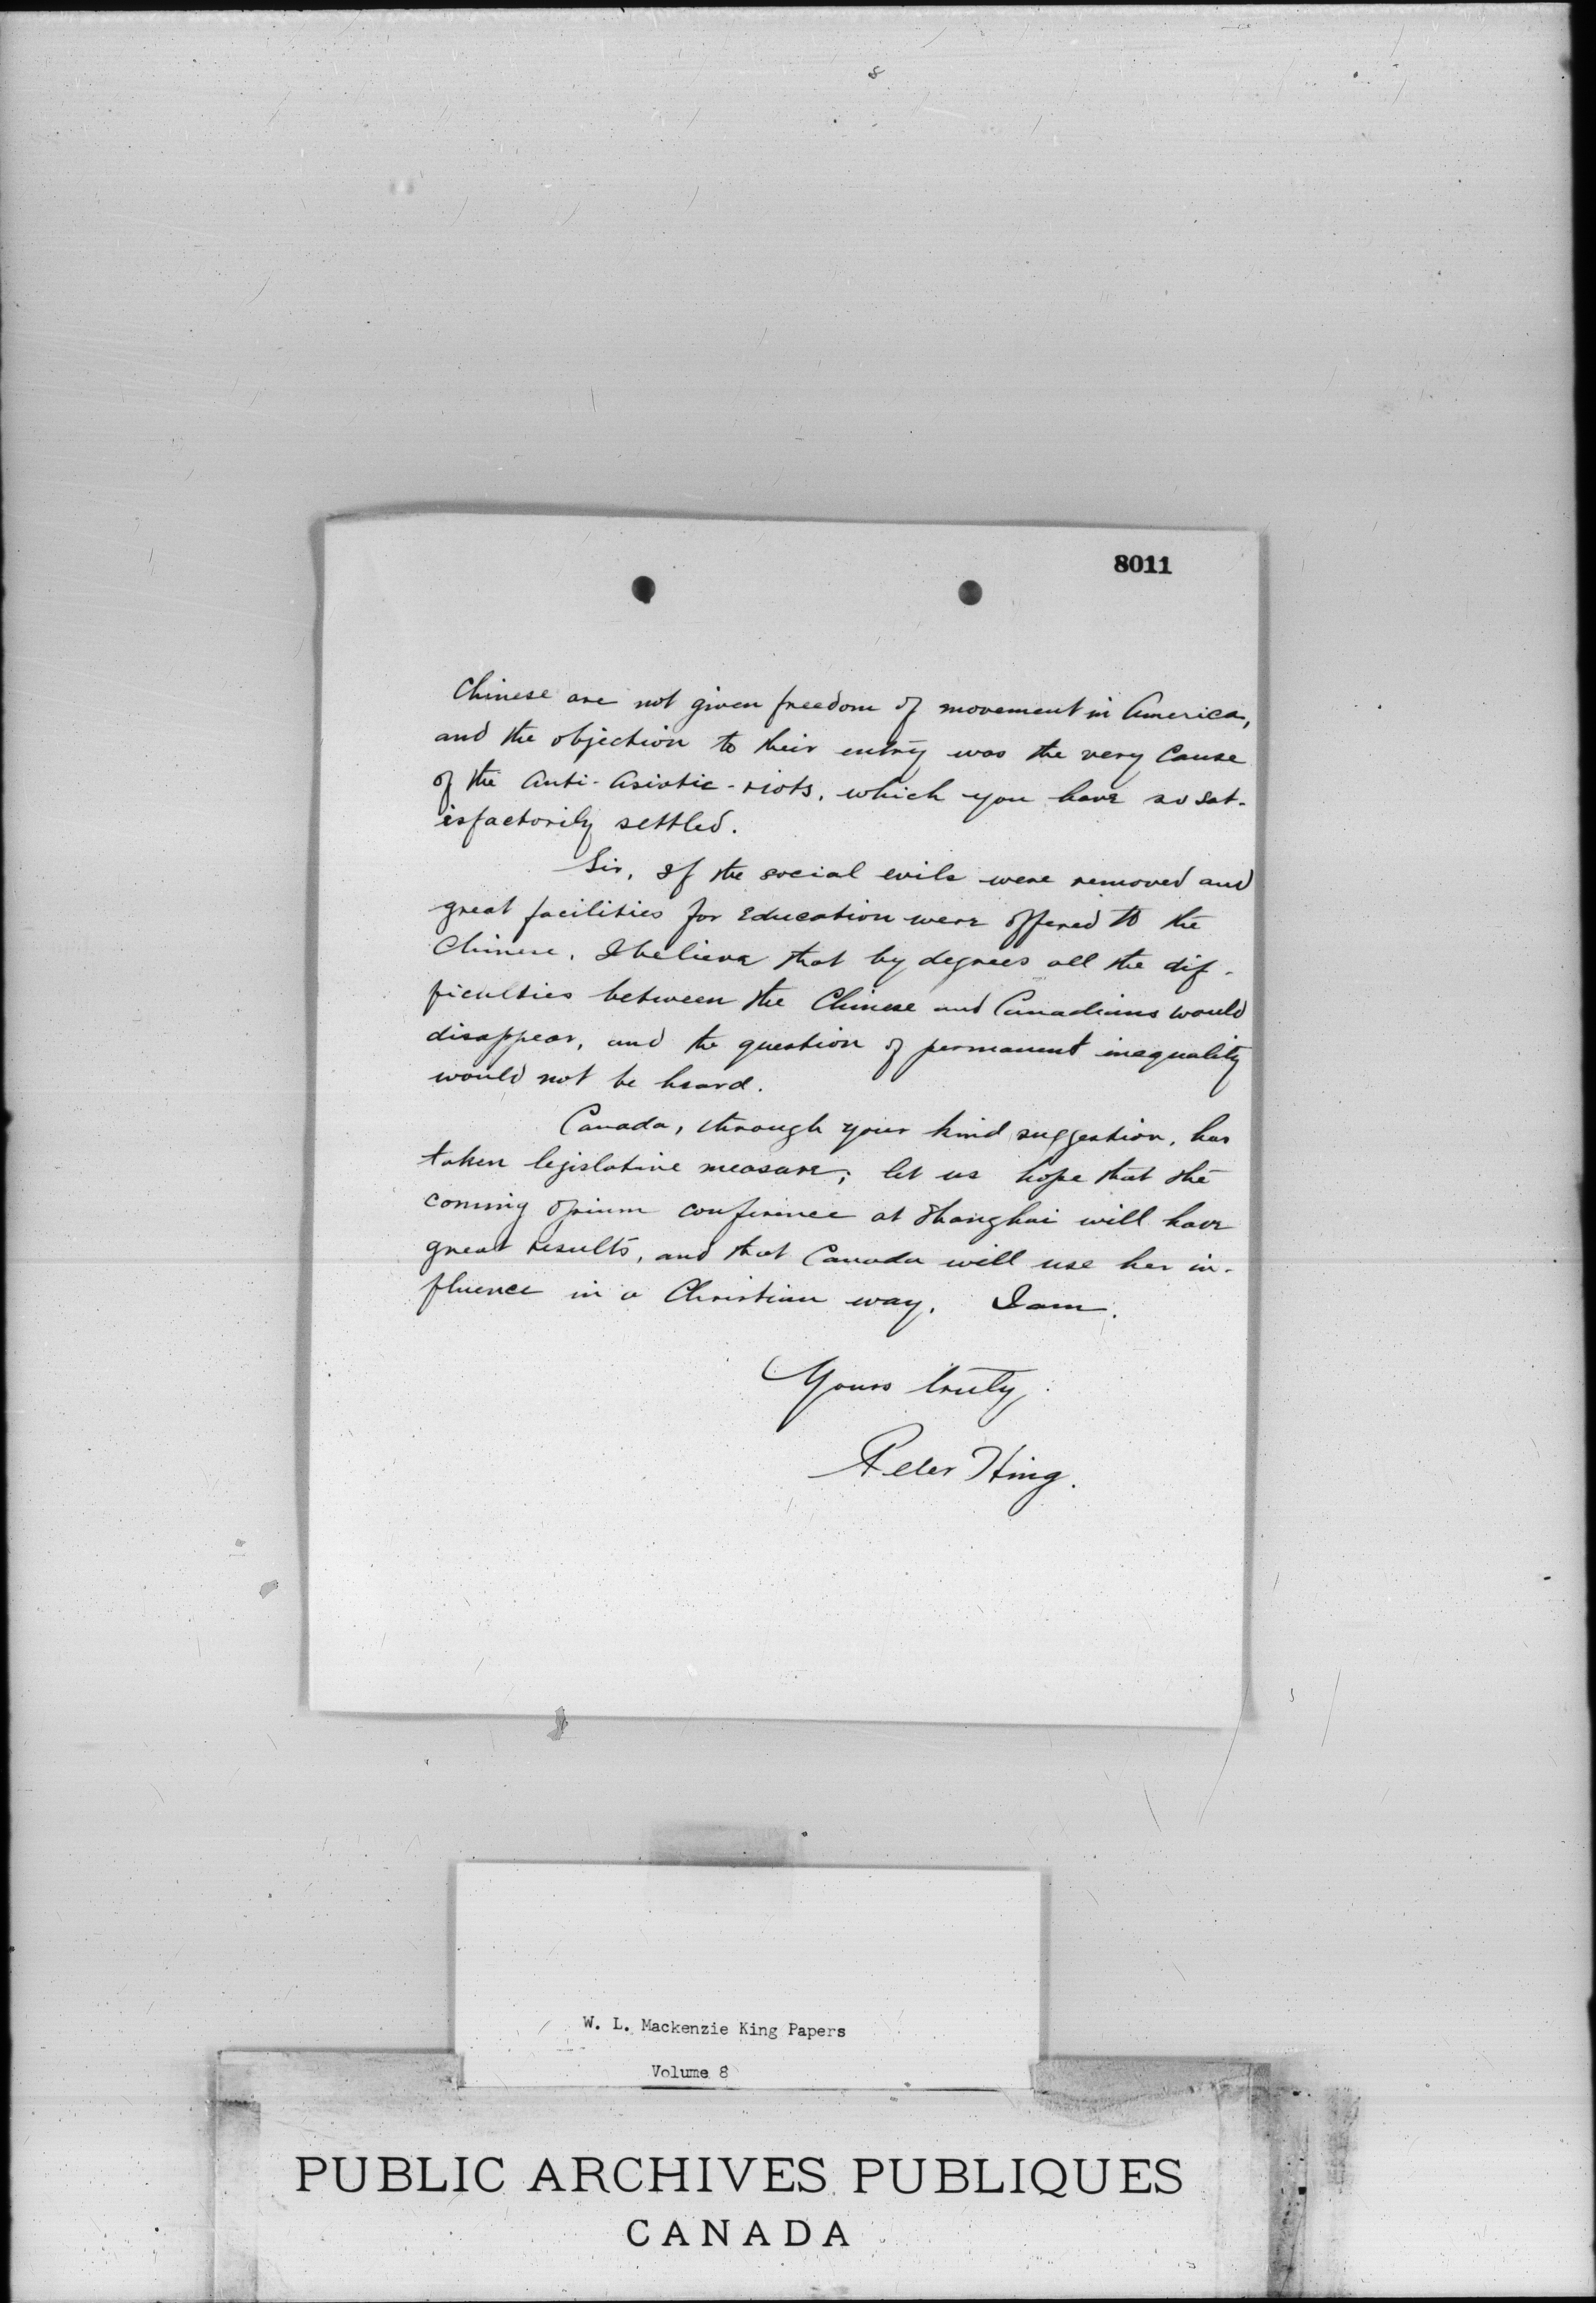 8011
Chinese are not given freedom of movement in America,
and the objection to their entry was the very Cause
of the Anti-Asiatic-riots, which you have so sat-
isfactorily settled.
Sir, If the social evils were removed and
great facilities for Education were offered to the
Chinese, I believe that by degrees all the dif-
ficulties between the Chinese and Canadians would
disappear, and the question of permanent inequality
would not be heard.
Canada, through your kind suggestion, has
taken legislative measure; let us hope that the
coming opium conference at Shanghai will have
great results, and that Canada will use her in-
fluence in a Christian way. I am.
Yours truly,
Peter Hing.
W. L. Mackenzie King Papers
Volume 8
PUBLIC ARCHIVES PUBLIQUES
CANADA